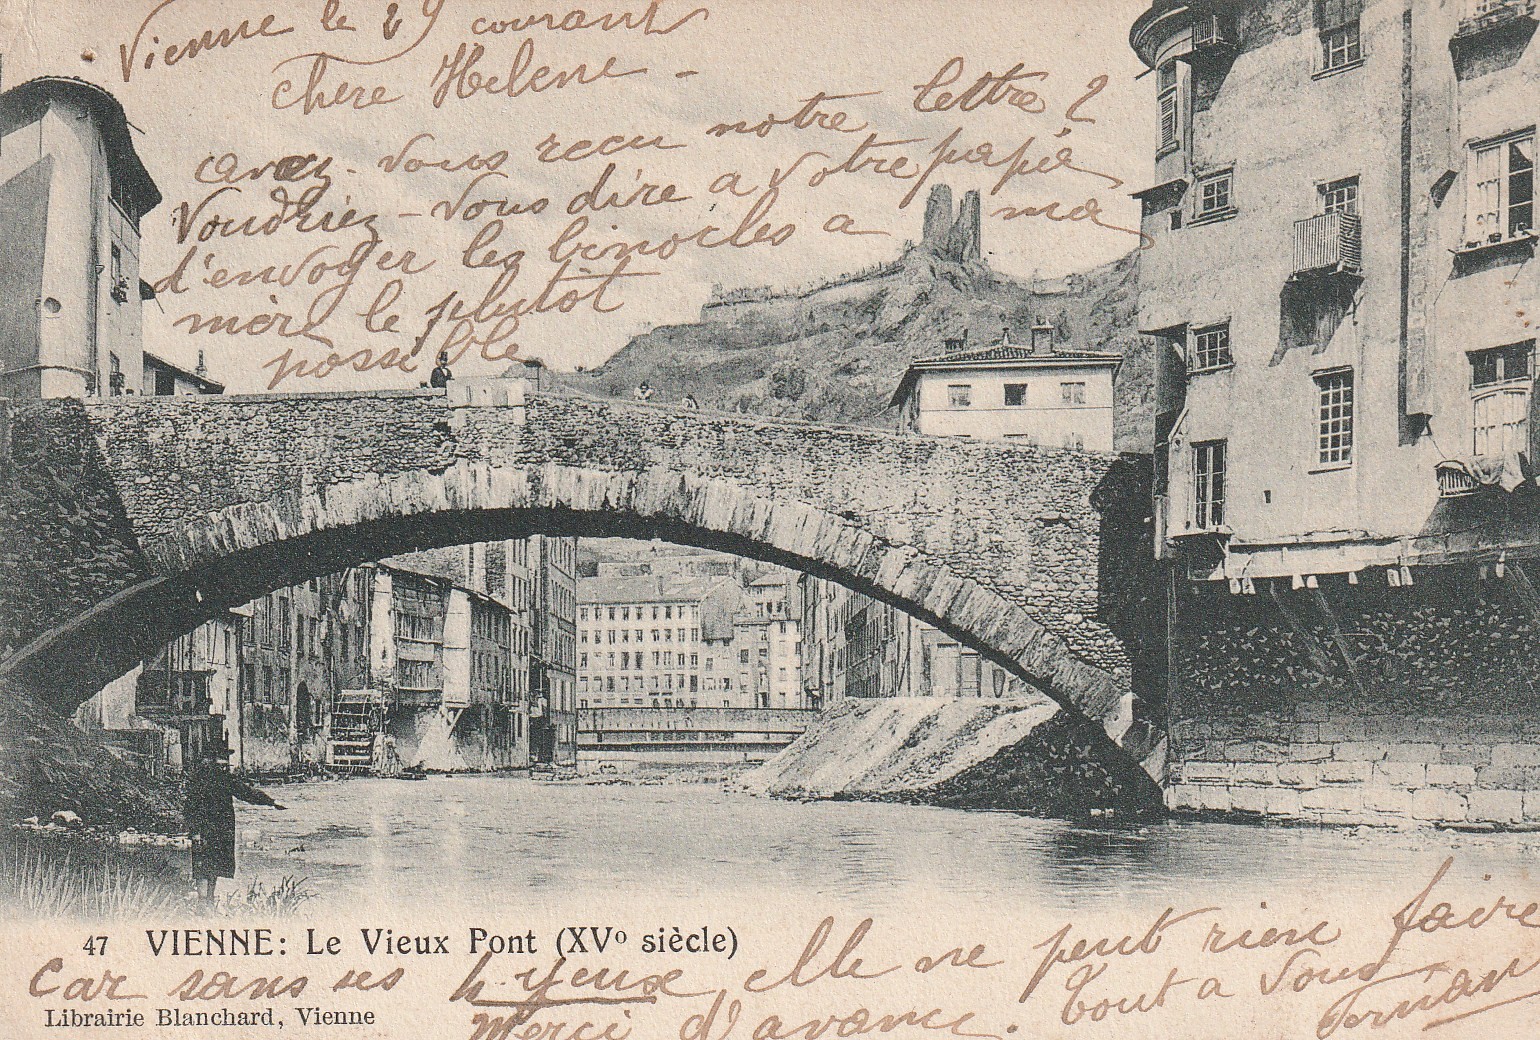 Vienne le 29 courant
chere Helene -
avez-vous recu notre lettre ?
Voudriez-vous dire a votre papa
d'envoyer les binocles a ma
mère le plutôt
possible
47 VIENNE: Le Vieux Pont (XVº siècle)
Car sans ses 4 yeux elle ne peut rien faire
Librairie Blanchard, Vienne
Merci d'avance. Tout a vous